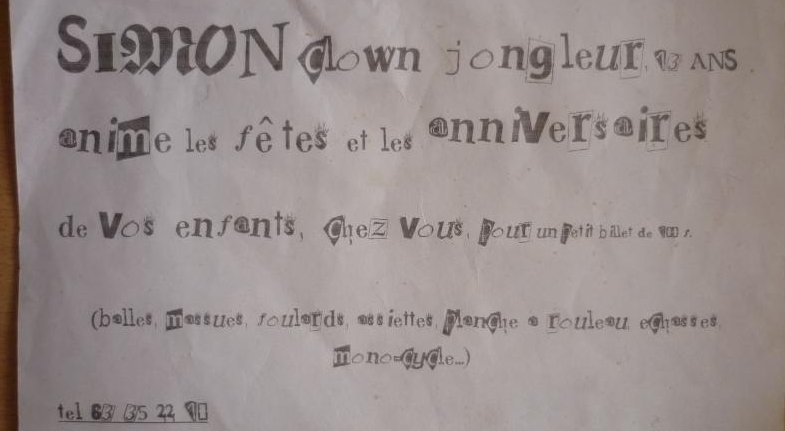 SIMON clown jongleur, 13 ANS
anime les fêtes et les anniversaires
de vos enfants, chez vous, pour un petit billet de 100 F.
(balles, massues, foulards, assiettes, planche a rouleau, echasses,
mono-cycle...)
tel 63 35 22 10